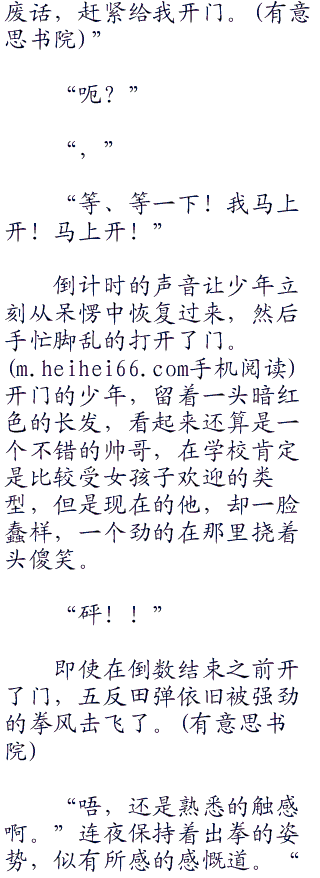 废话，赶紧给我开门。(有意
思书院)”
“呃？”
“，”
“等、等一下！我马上
开！马上开！”
倒计时的声音让少年立
刻从呆愣中恢复过来，然后
手忙脚乱的打开了门。
(m.heihei66.com手机阅读)
开门的少年，留着一头暗红
色的长发，看起来还算是一
个不错的帅哥，在学校肯定
是比较受女孩子欢迎的类
型，但是现在的他，却一脸
蠢样，一个劲的在那里挠着
头傻笑。
“砰！！”
即使在倒数结束之前开
了门，五反田弹依旧被强劲
的拳风击飞了。(有意思书
院)
“唔，还是熟悉的触感
啊。”连夜保持着出拳的姿
势，似有所感的感慨道。“